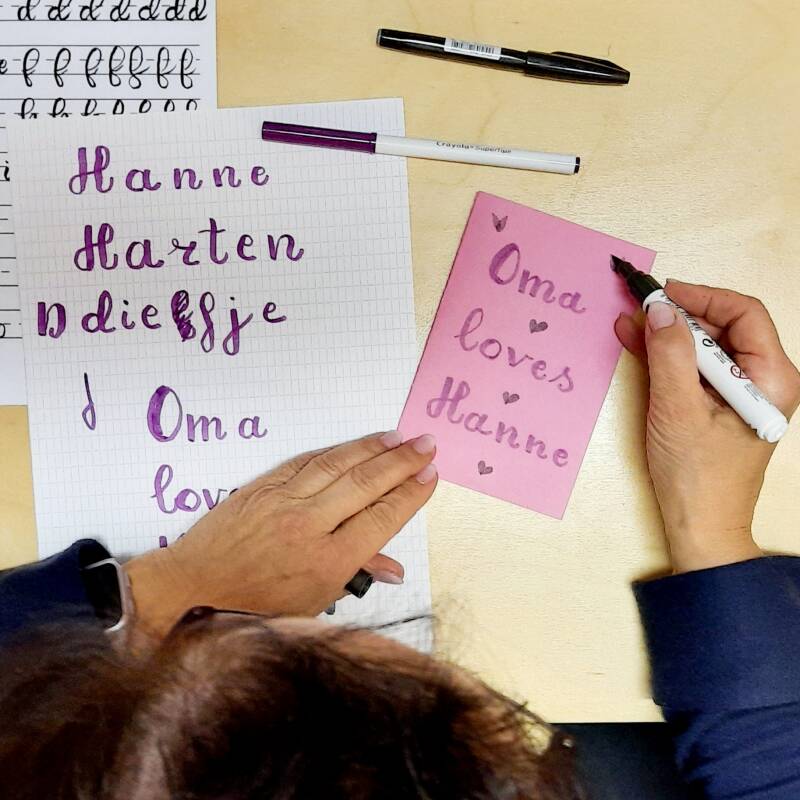 d d d d d d d
Hanne
Harten
D diefje
Oma
lov
Crayola SuperTips
Oma
loves
Hanne